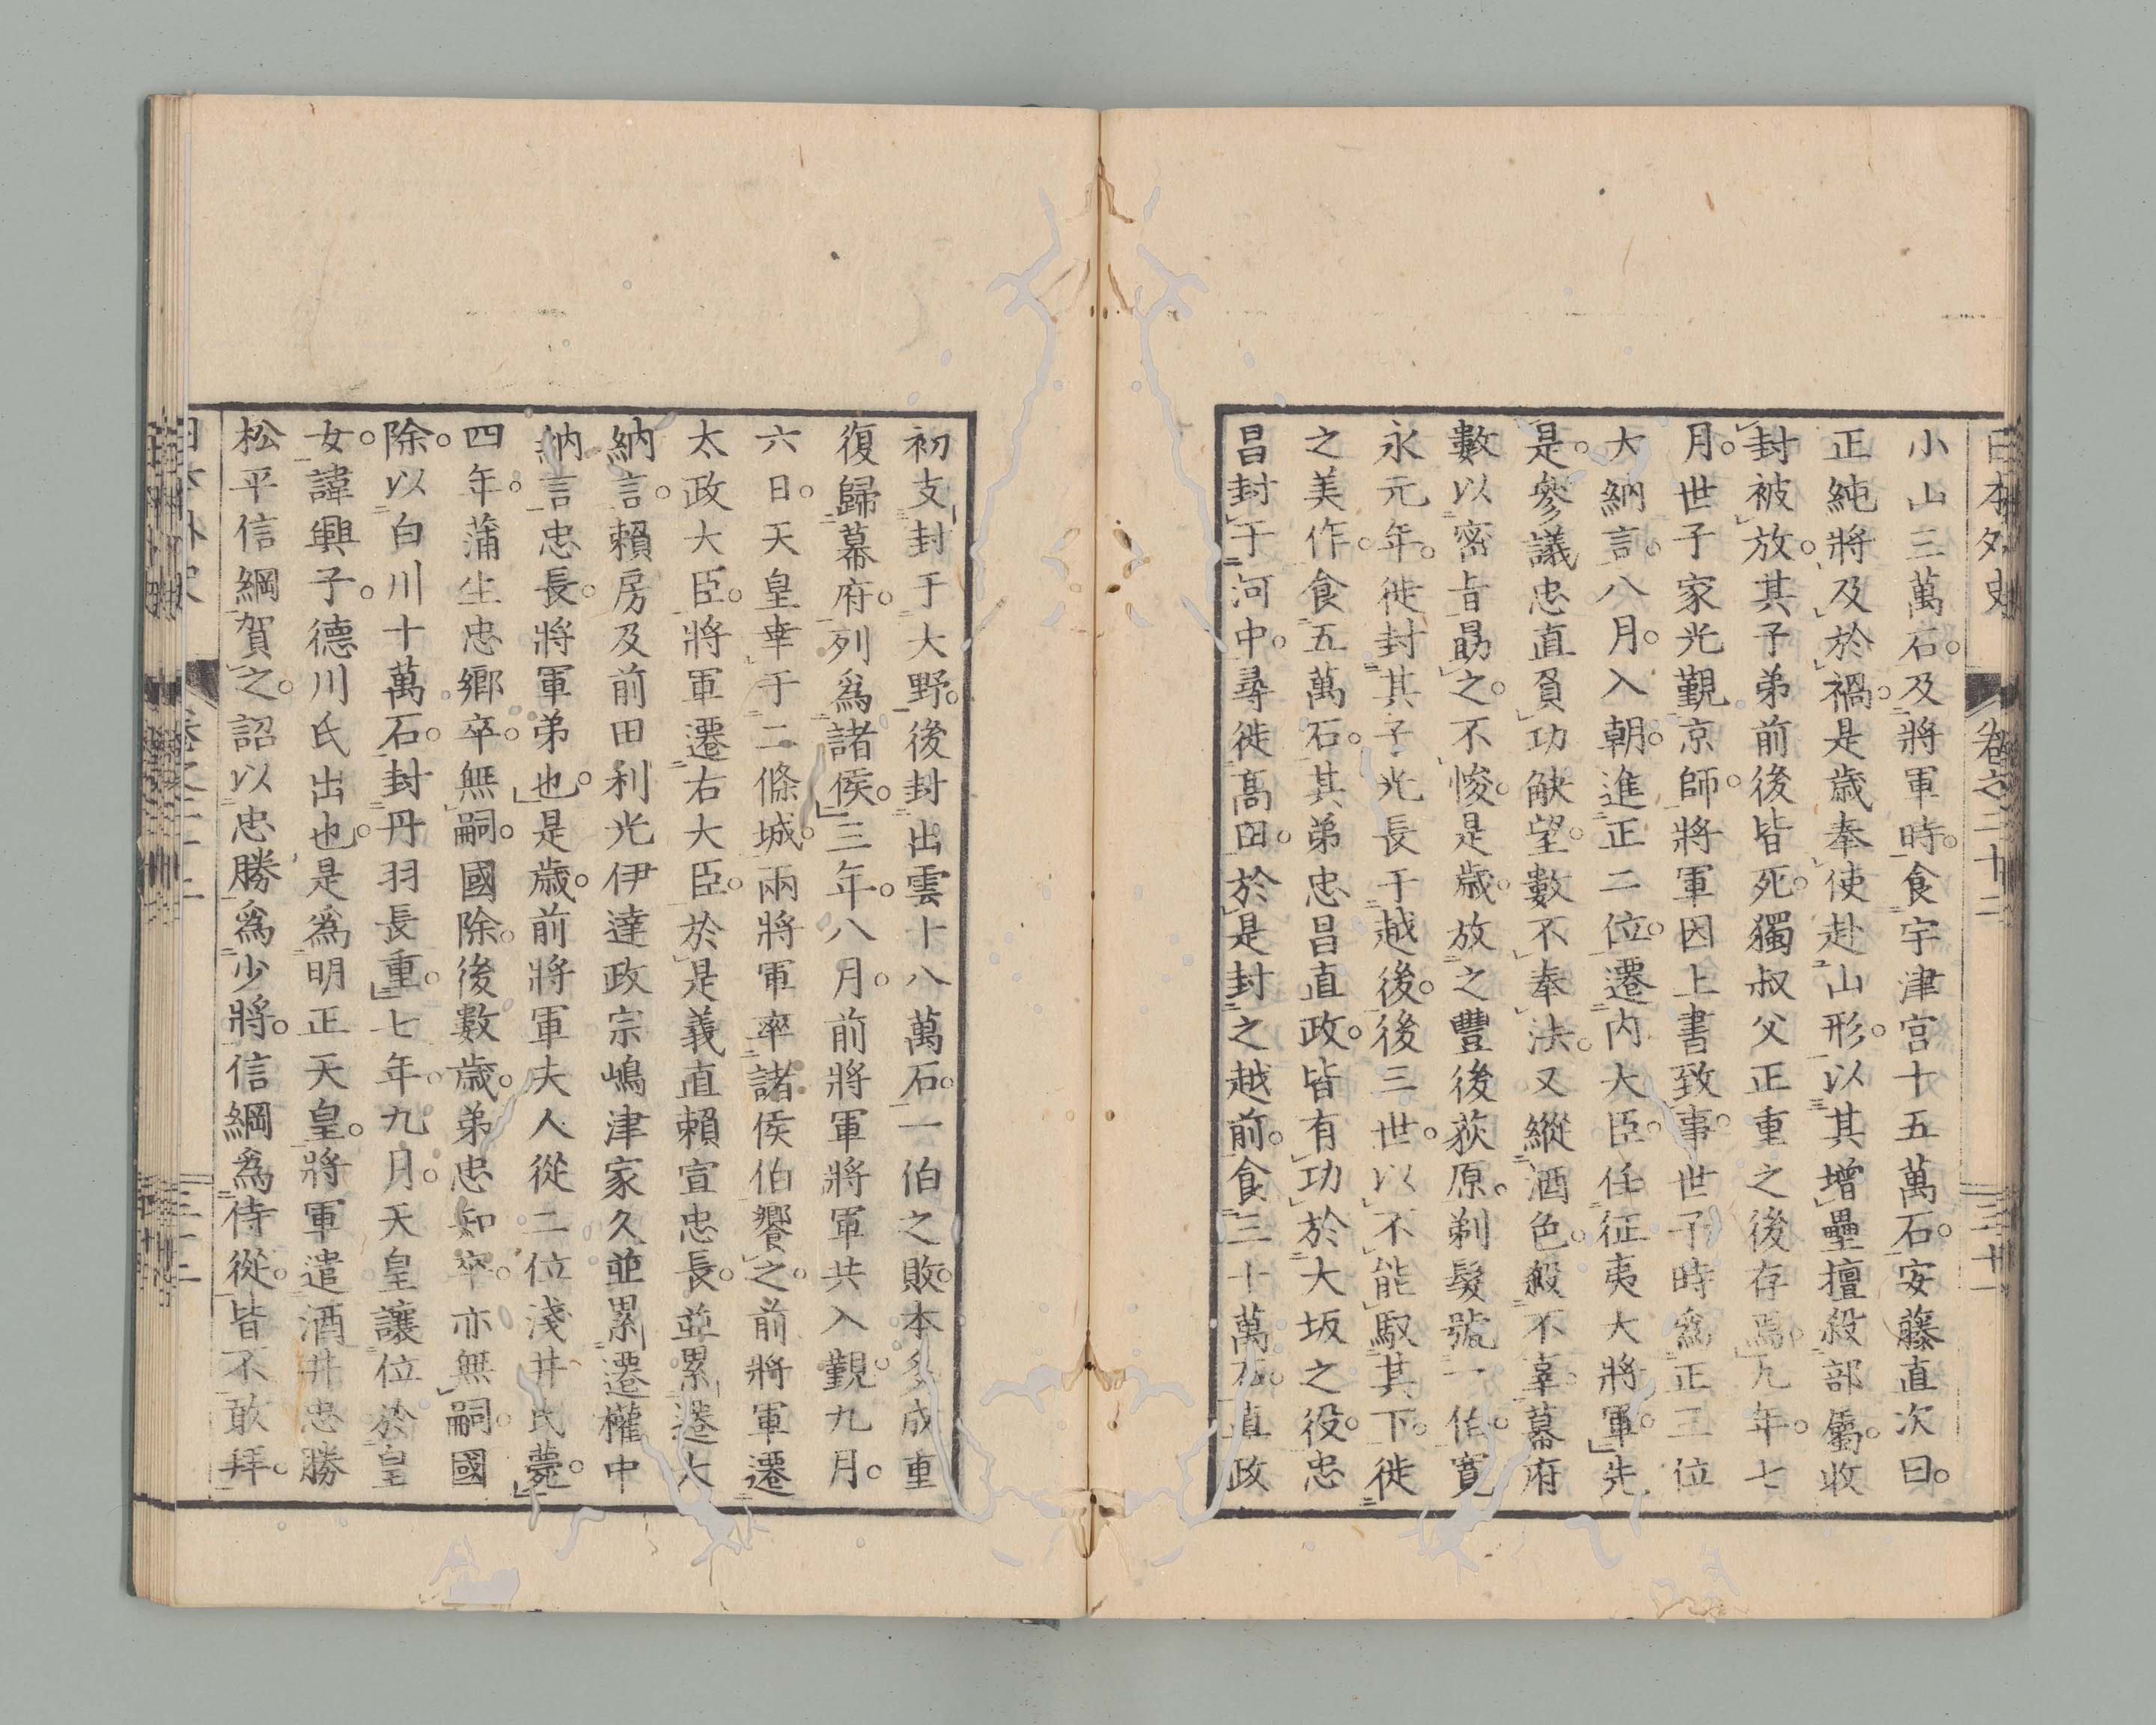 日本外史 卷之二十二 三十一
小山三萬石。及將軍時。食宇津宮十五萬石。安藤直次曰。
正純將及於禍。是歲奉使赴山形。以其增壘擅殺部屬。收
封被放。其子弟前後皆死。獨叔父正重之後存焉。九年七
月。世子家光覲京師。將軍因上書致事。世子時爲正三位
大納言。八月。入朝。進正二位。遷内大臣。任征夷大將軍。先
是。參議忠直負功觖望。數不奉法。又縱酒色。殺不辜。幕府
數以密旨勗之。不悛。是歲。放之豐後荻原。剃髮號一伯。寬
永元年。徙封其子光長于越後。後三世。以不能馭其下。徙
之美作。食五萬石。其弟忠昌直政。皆有功於大坂之役。忠
昌封于河中。尋徙高田。於是封之越前。食三十萬石。直政
初支封于大野。後封出雲十八萬石。一伯之敗。本多成重
復歸幕府。列爲諸侯。三年。八月。前將軍將軍共入覲。九月。
六日。天皇幸于二條城。兩將軍率諸侯伯饗之。前將軍遷
太政大臣。將軍遷右大臣。於是義直賴宣忠長。並累遷大
納言。賴房及前田利光伊達政宗嶋津家久並累遷權中
納言。忠長。將軍弟也。是歲。前將軍夫人從二位淺井氏薨。
四年。蒲生忠鄉卒。無嗣。國除。後數歲。弟忠知卒。亦無嗣。國
除。以白川十萬石。封丹羽長重。七年。九月。天皇讓位於皇
女。諱興子。德川氏出也。是爲明正天皇。將軍遣酒井忠勝
松平信綱賀之。詔以忠勝爲少將。信綱爲侍從。皆不敢拜。